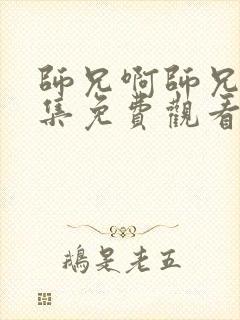 師兄啊師兄
集免費觀看
鵝是老五